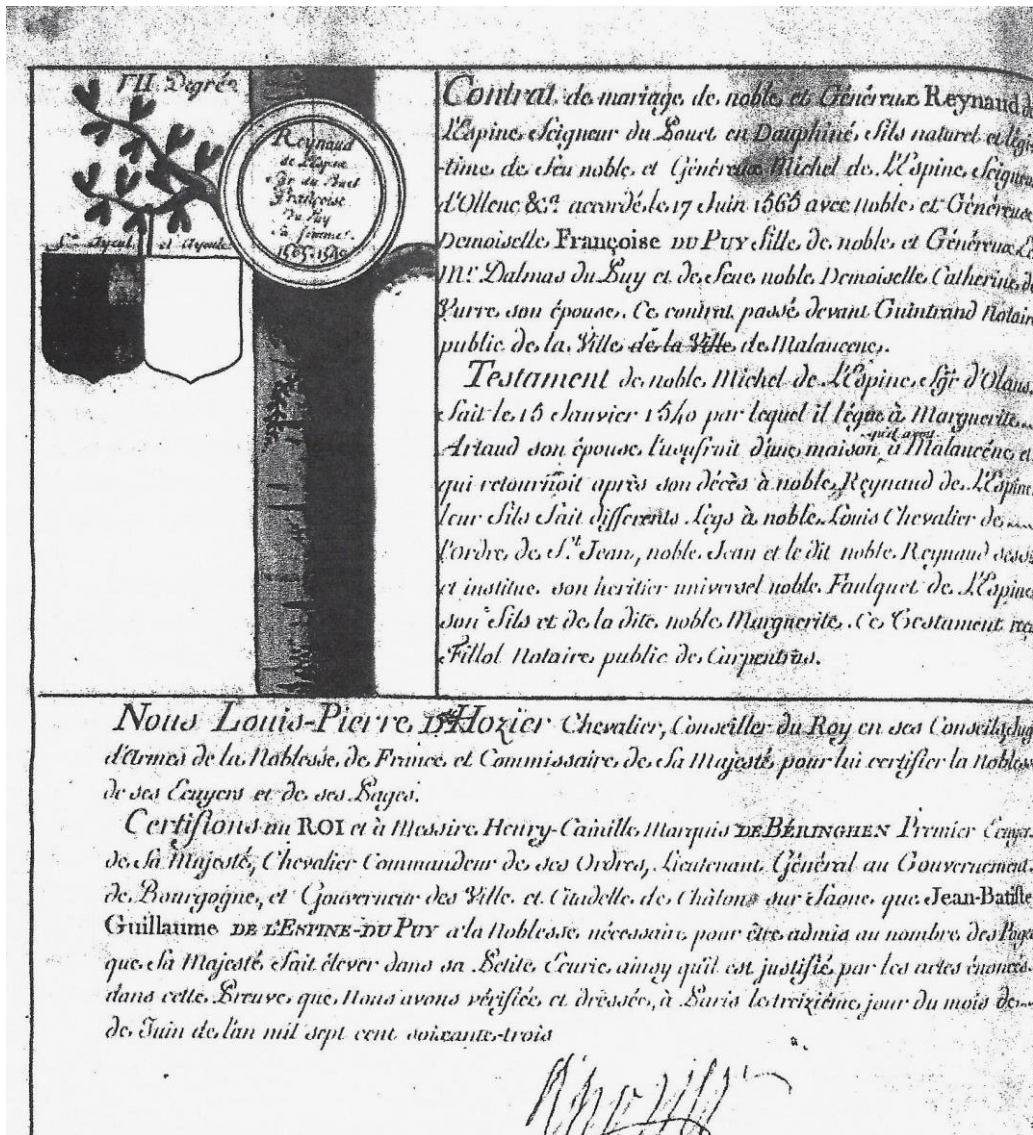 VII Degré
Reynaud
de l'Espine
Sgr du Pouet
Françoise
Du Puy
sa femme.
1565. 1540
7es Ayeul et Ayeule
Contrat de mariage de noble et Généreux Reynaud de
l'Espine Seigneur du Pouet en Dauphiné, fils naturel et légi-
-time de feu noble et Généreux Michel de L'Espine Seigneur
d'Ollene &ca. accordé le 17 Juin 1565 avec noble et Généreuse
Demoiselle Françoise DU PUY fille de noble et Généreux
Mr. Dalmas du Puy et de feue noble Demoiselle Catherine de
Vurre son épouse. Ce contrat passé devant Guintrand Notaire
public de la Ville de la Ville de Malaucene.
Testament de noble Michel de L'Espine Sgr d'Olans
fait le 15 Janvier 1540 par lequel il légue à Marguerite
Artaud son épouse l'usufruit d'une maison qu'il avoit à Malaucéne et
qui retournoit après son décès à noble Reynaud de L'Espine
leur fils fait differents Legs à noble Louis Chevalier de
l'Ordre de St. Jean, noble Jean et le dit noble Reynaud
et institue son heritier universel noble Faulquet de L'Espine
son fils et de la dite noble Marguerite. Ce Testament reçu
Fillol Notaire public de Carpentras.
Nous Louis-Pierre D'Hozier Chevalier, Conseiller du Roy en ses Conseils, Juge
d'Armes de la Noblesse de France et Commissaire de Sa Majesté pour lui certifier la Noblesse
de ses Ecuyers et de ses Pages.
Certifions au ROI et à Messire Henry-Camille Marquis DE BÉRINGHEN Premier Ecuyer
de Sa Majesté, Chevalier Commandeur de ses Ordres, Lieutenant Général au Gouvernement
de Bourgogne, et Gouverneur des Ville et Citadelle de Châlons sur Saone que Jean-Batiste
Guillaume DE L'ESPINE-DU PUY a la Noblesse nécessaire pour être admis au nombre des Pages
que Sa Majesté fait élever dans sa Petite Ecurie ainsy qu'il est justifié par les actes énoncés
dans cette Preuve que Nous avons vérifiée et dressée, à Paris le treizième jour du mois de
de Juin de l'an mil sept cent soixante-trois